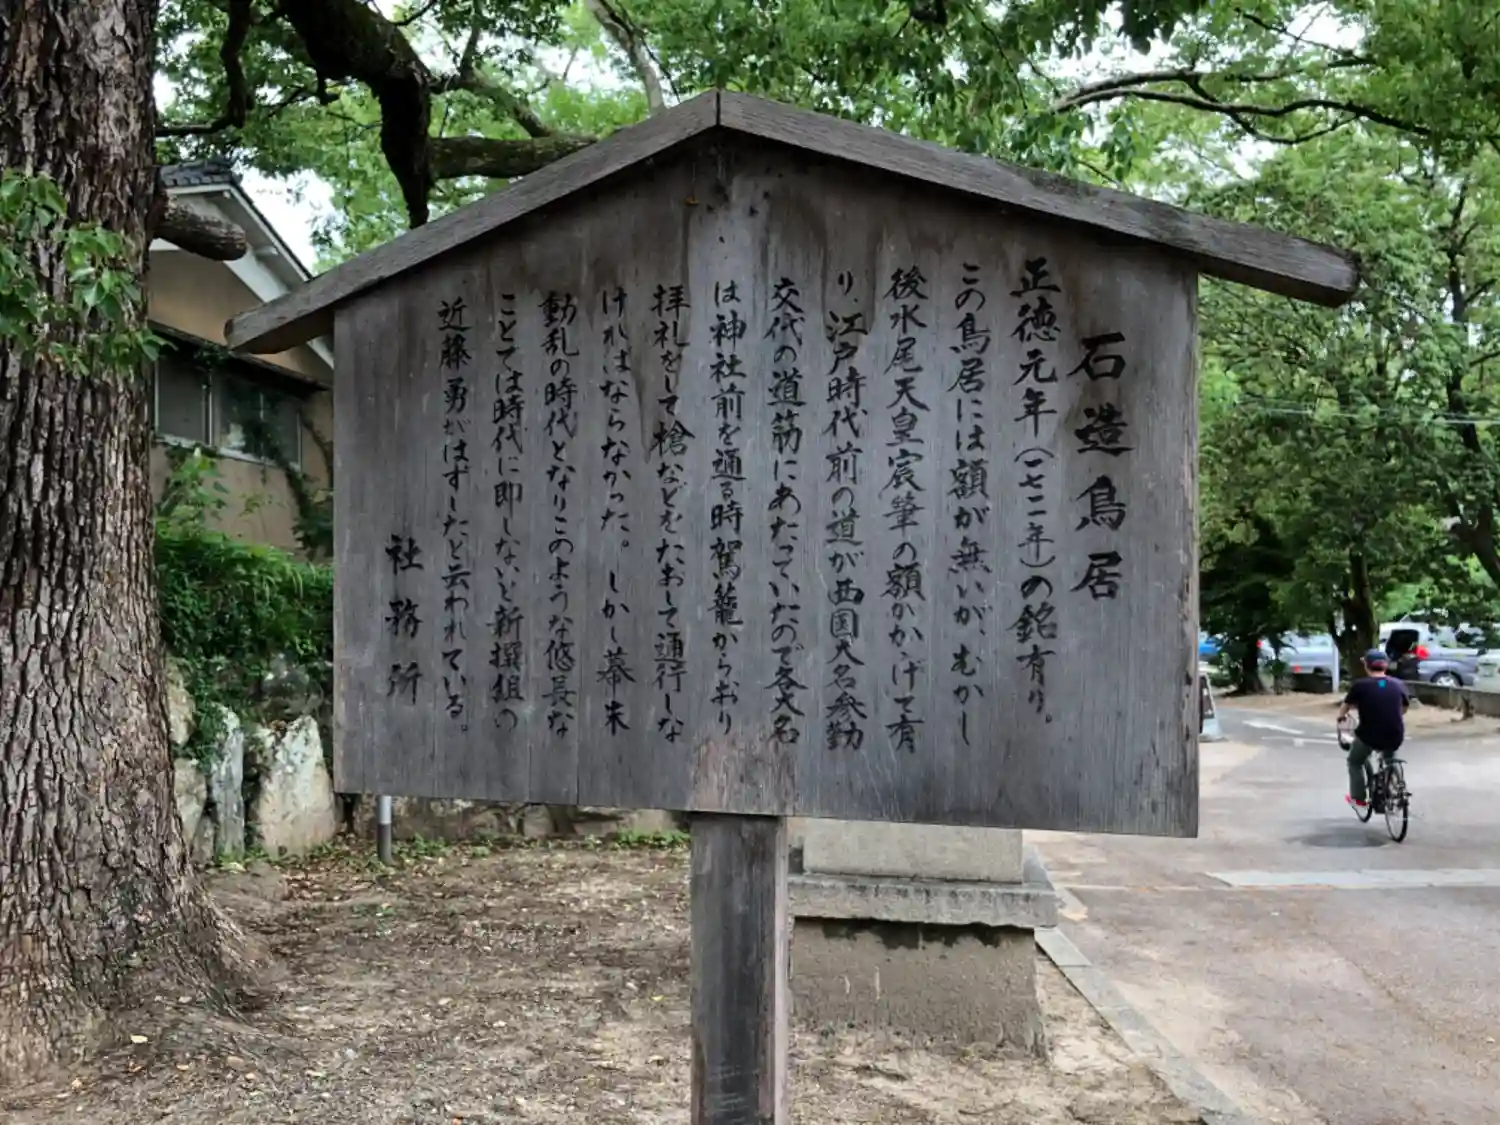 石造鳥居
正徳元年(一七一一年)の銘有り。
この鳥居には額が無いが、むかし
後水尾天皇宸筆の額がかゝげて有
り、江戸時代前の道が西国大名参勤
交代の道筋にあたっていたので各大名
は神社前を通る時駕籠からおり
拝礼をして槍などをたおして通行しな
ければならなかった。しかし幕末
動乱の時代となりこのような悠長な
ことでは時代に即しないと新撰組の
近藤勇がはずしたと云われている。
社務所